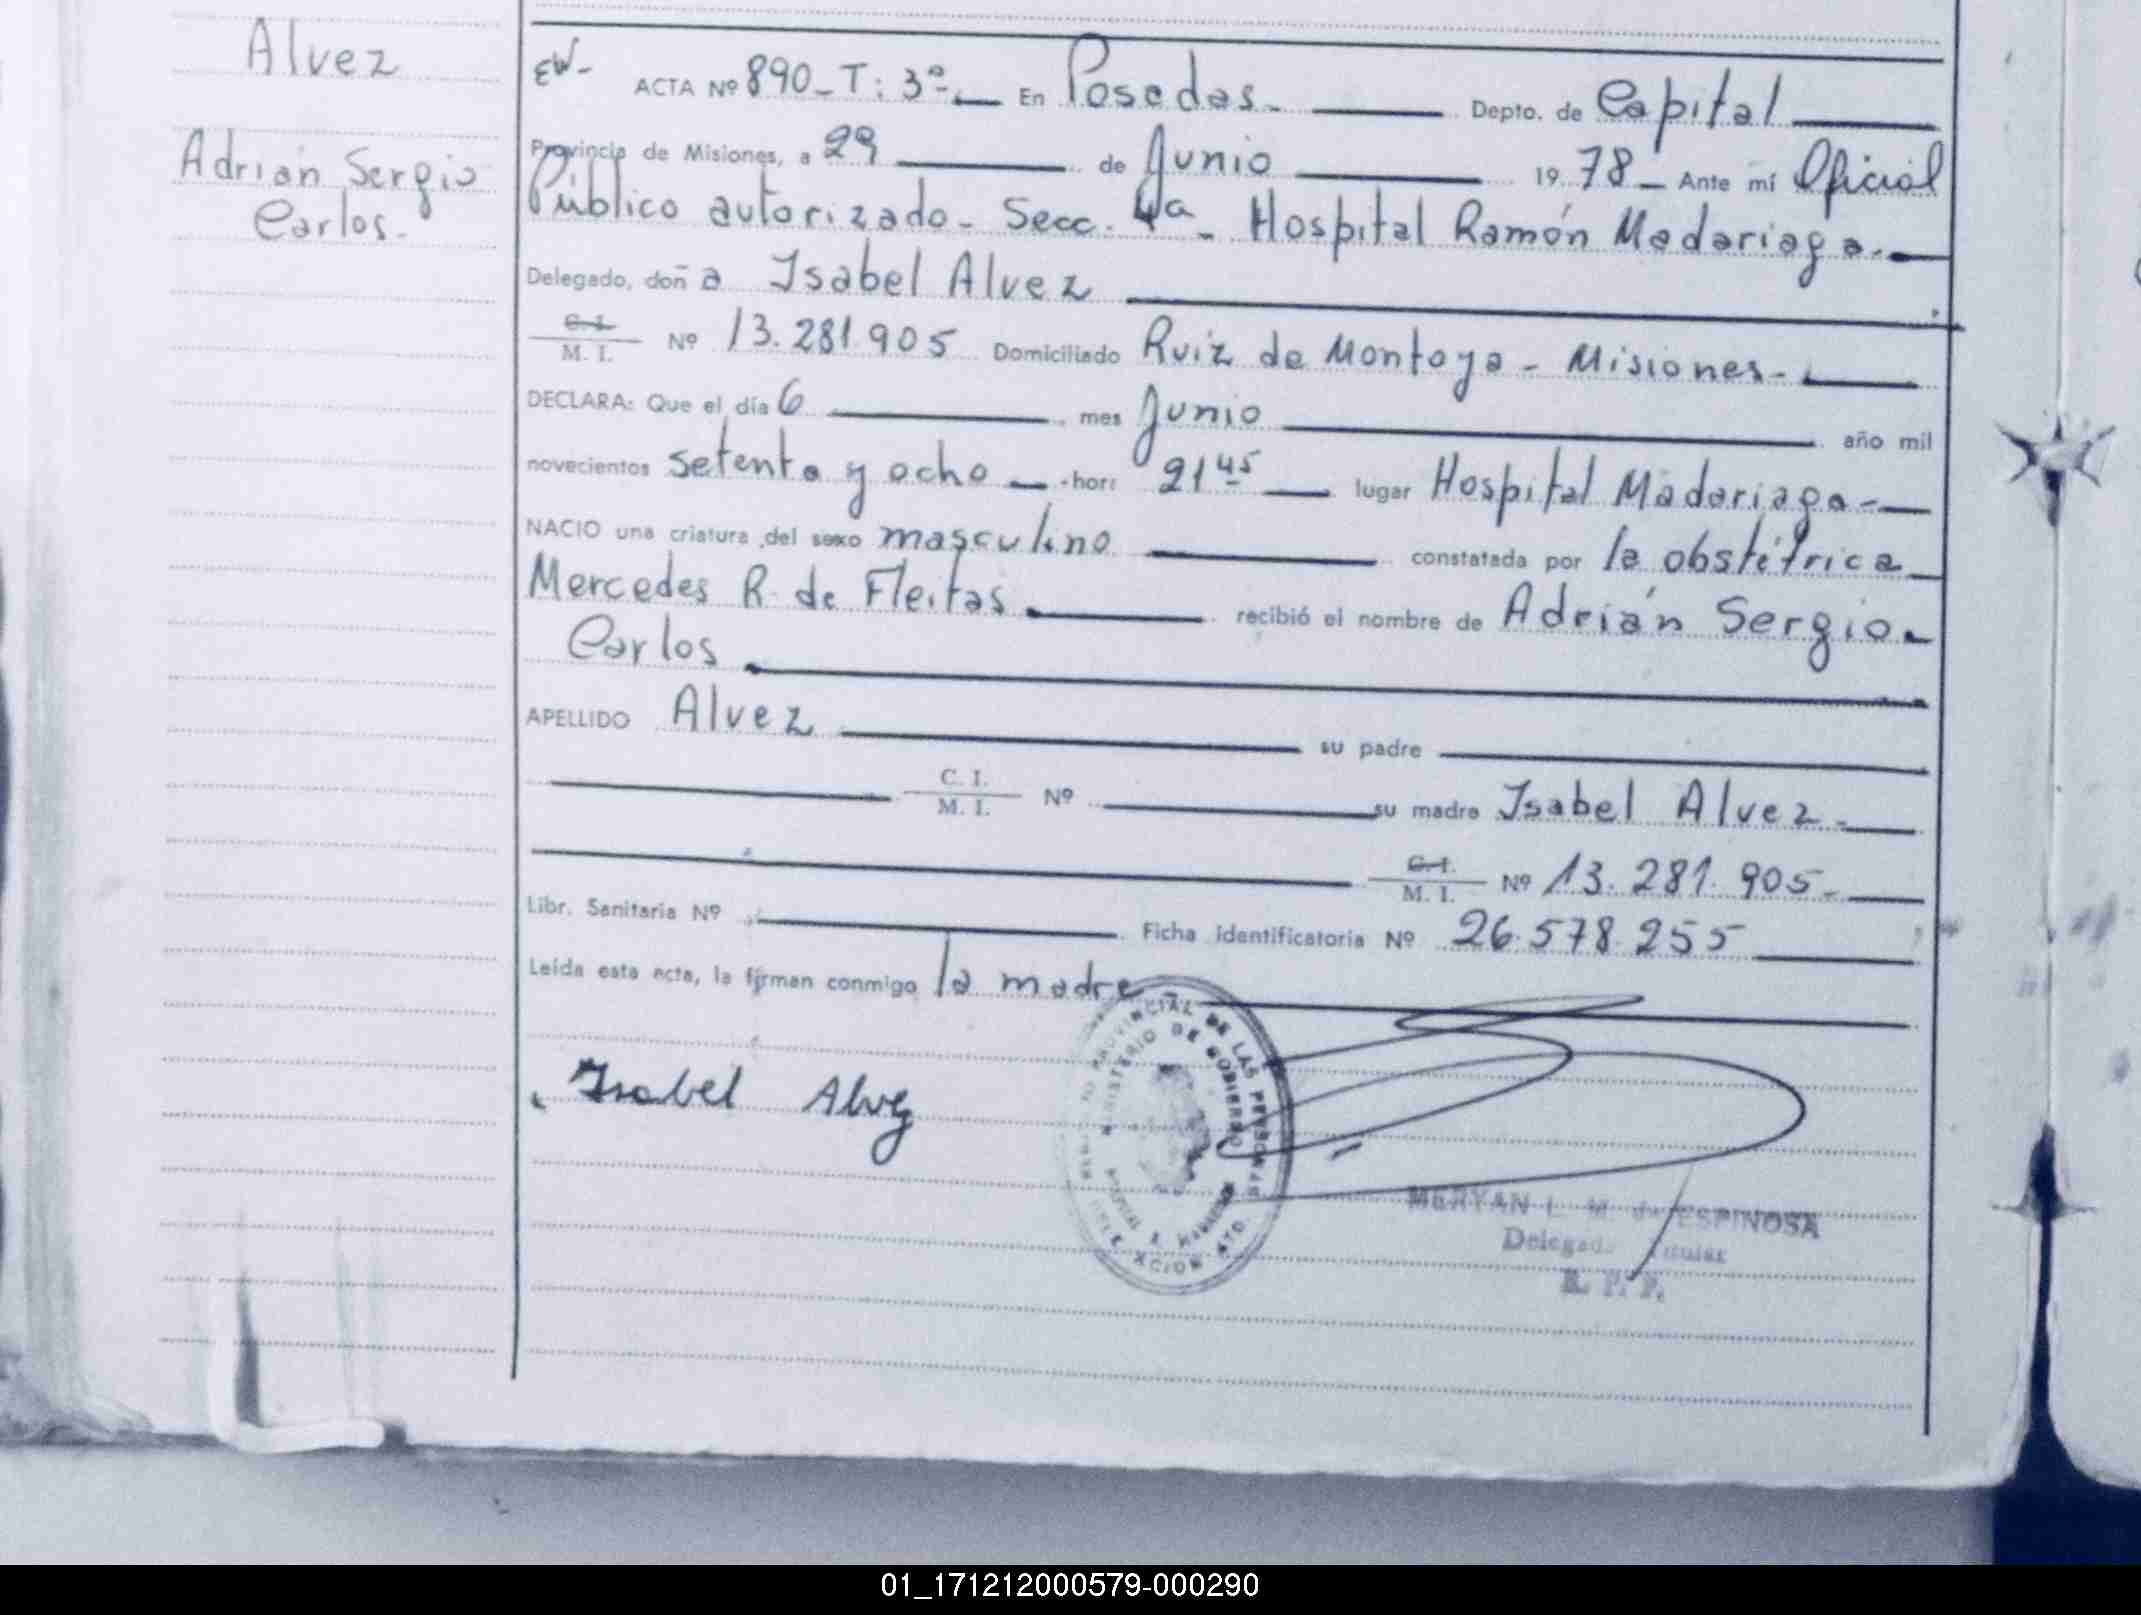 Alvez
Adrián Sergio
Carlos.
EW- ACTA Nº 890_T: 3º- En Posadas. Depto. de Capital
Provincia de Misiones, a 29 de Junio 19 78 - Ante mí Oficial
Público autorizado - Secc. 4a - Hospital Ramón Madariaga.
Delegado, doña Isabel Alvez
C. I.
M. I. Nº 13.281.905 Domiciliado Ruiz de Montoya - Misiones-
DECLARA: Que el día 6 mes Junio año mil
novecientos setenta y ocho - hor: 21 45 lugar Hospital Madariaga-
NACIO una criatura del sexo masculino constatada por la obstétrica
Mercedes R. de Fleitas recibió el nombre de Adrián Sergio
Carlos
APELLIDO Alvez su padre
C. I.
M. I. Nº su madre Isabel Alvez.
C. I.
M. I. Nº 13.281.905-
Libr. Sanitaria Nº Ficha identificatoria Nº 26.578.255
Leída esta acta, la firman conmigo la madre
Isabel Alvez
PROVINCIAL DE LAS PERSONAS
MINISTERIO DE GOBIERNO
MERYAN L. M. de ESPINOSA
Delegado Titular
R. P. P.
01_171212000579-000290